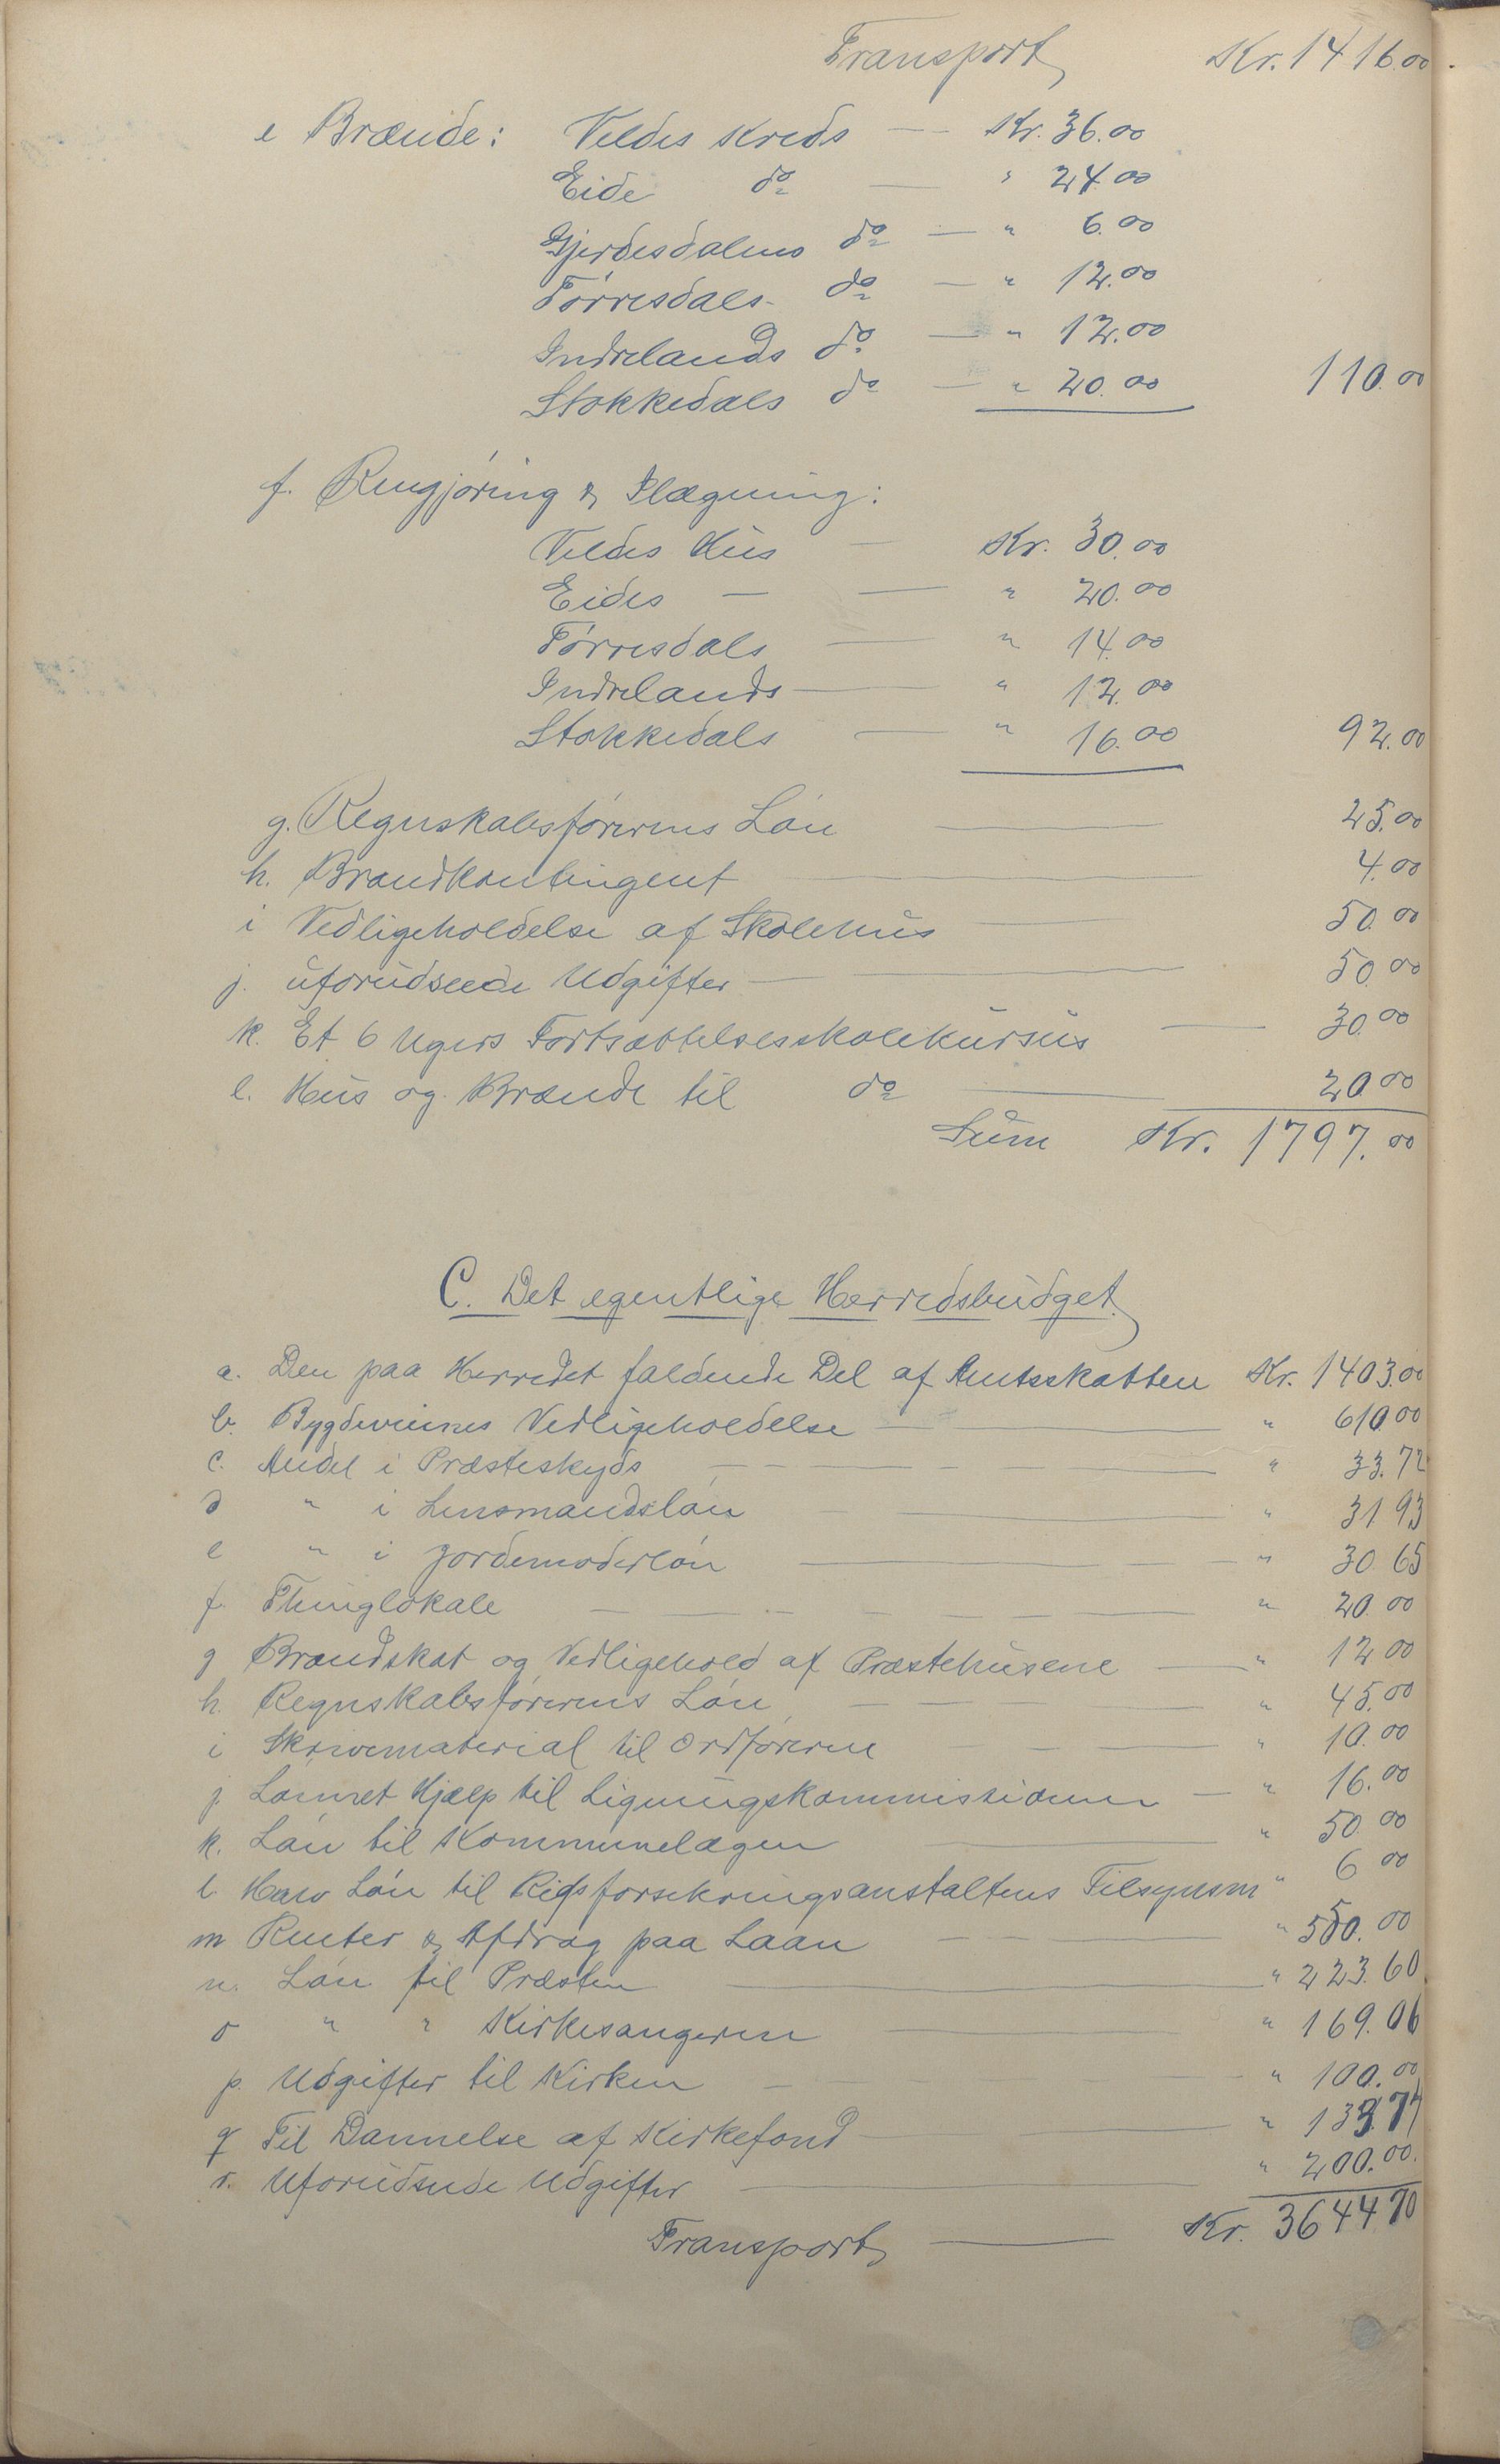 Transport Kr. 1416.00
e Brænde: Veldes Kreds — Kr. 36.00
Eide do — " 24.00
Gjerdesdalens do — " 6.00
Tórresdals do — " 12.00
Indrelands do — " 12.00
Stokkedals do — " 20.00 110.00
f. Rengjóring & Ilægning:
Veldes Hus — Kr. 30.00
Eides — — " 20.00
Tórresdals — " 14.00
Indrelands — " 12.00
Stokkedals — " 16.00 92.00
g. Regnskabsfórerens Lón — 25.00
h. Brandkontingent — 4.00
i Vedligeholdelse af Skolehus — 50.00
j. uforudseede Udgifter — 50.00
k. Et 6 Ugers Fortsættelsesskolekursus — 30.00
l. Hus og Brænde til do — 20.00
Sum Kr. 1797.00
C. Det egentlige Herredsbudget
a. Den paa Herredet faldende Del af Amtsskatten Kr. 1403.00
b. Bygdeveienes Vedligeholdelse — " 610.00
c. Andel i Præsteskyds — " 33.72
d " i Lensmandslón — " 31 93
e " i Jordemoderlón — " 30.65
f. Thinglokale — " 20.00
g Brandskat og Vedligehold af Præstehusene — " 12 00
h. Regnskabsfórerens Lón — " 45.00
i Skrivemateriał til Ordfóreren — " 10.00
j. Lónnet Hjælp til Ligningskommissionen — " 16.00
k. Lón til Kommunelægen — " 50.00
l. Halv Lón til Rigsforsekringsanstaltens Tilsynsm " 6 00
m Renter & Afdrag paa Laan — " 550.00
n. Lón til Præsten — " 223.60
o " " Kirkesangeren — " 169.06
p. Udgifter til Kirken — " 100.00
q Til Dannelse af Kirkefond — " 133.74
r. Uforudseede Udgifter — " 200.00.
Transport — Kr. 3644.70